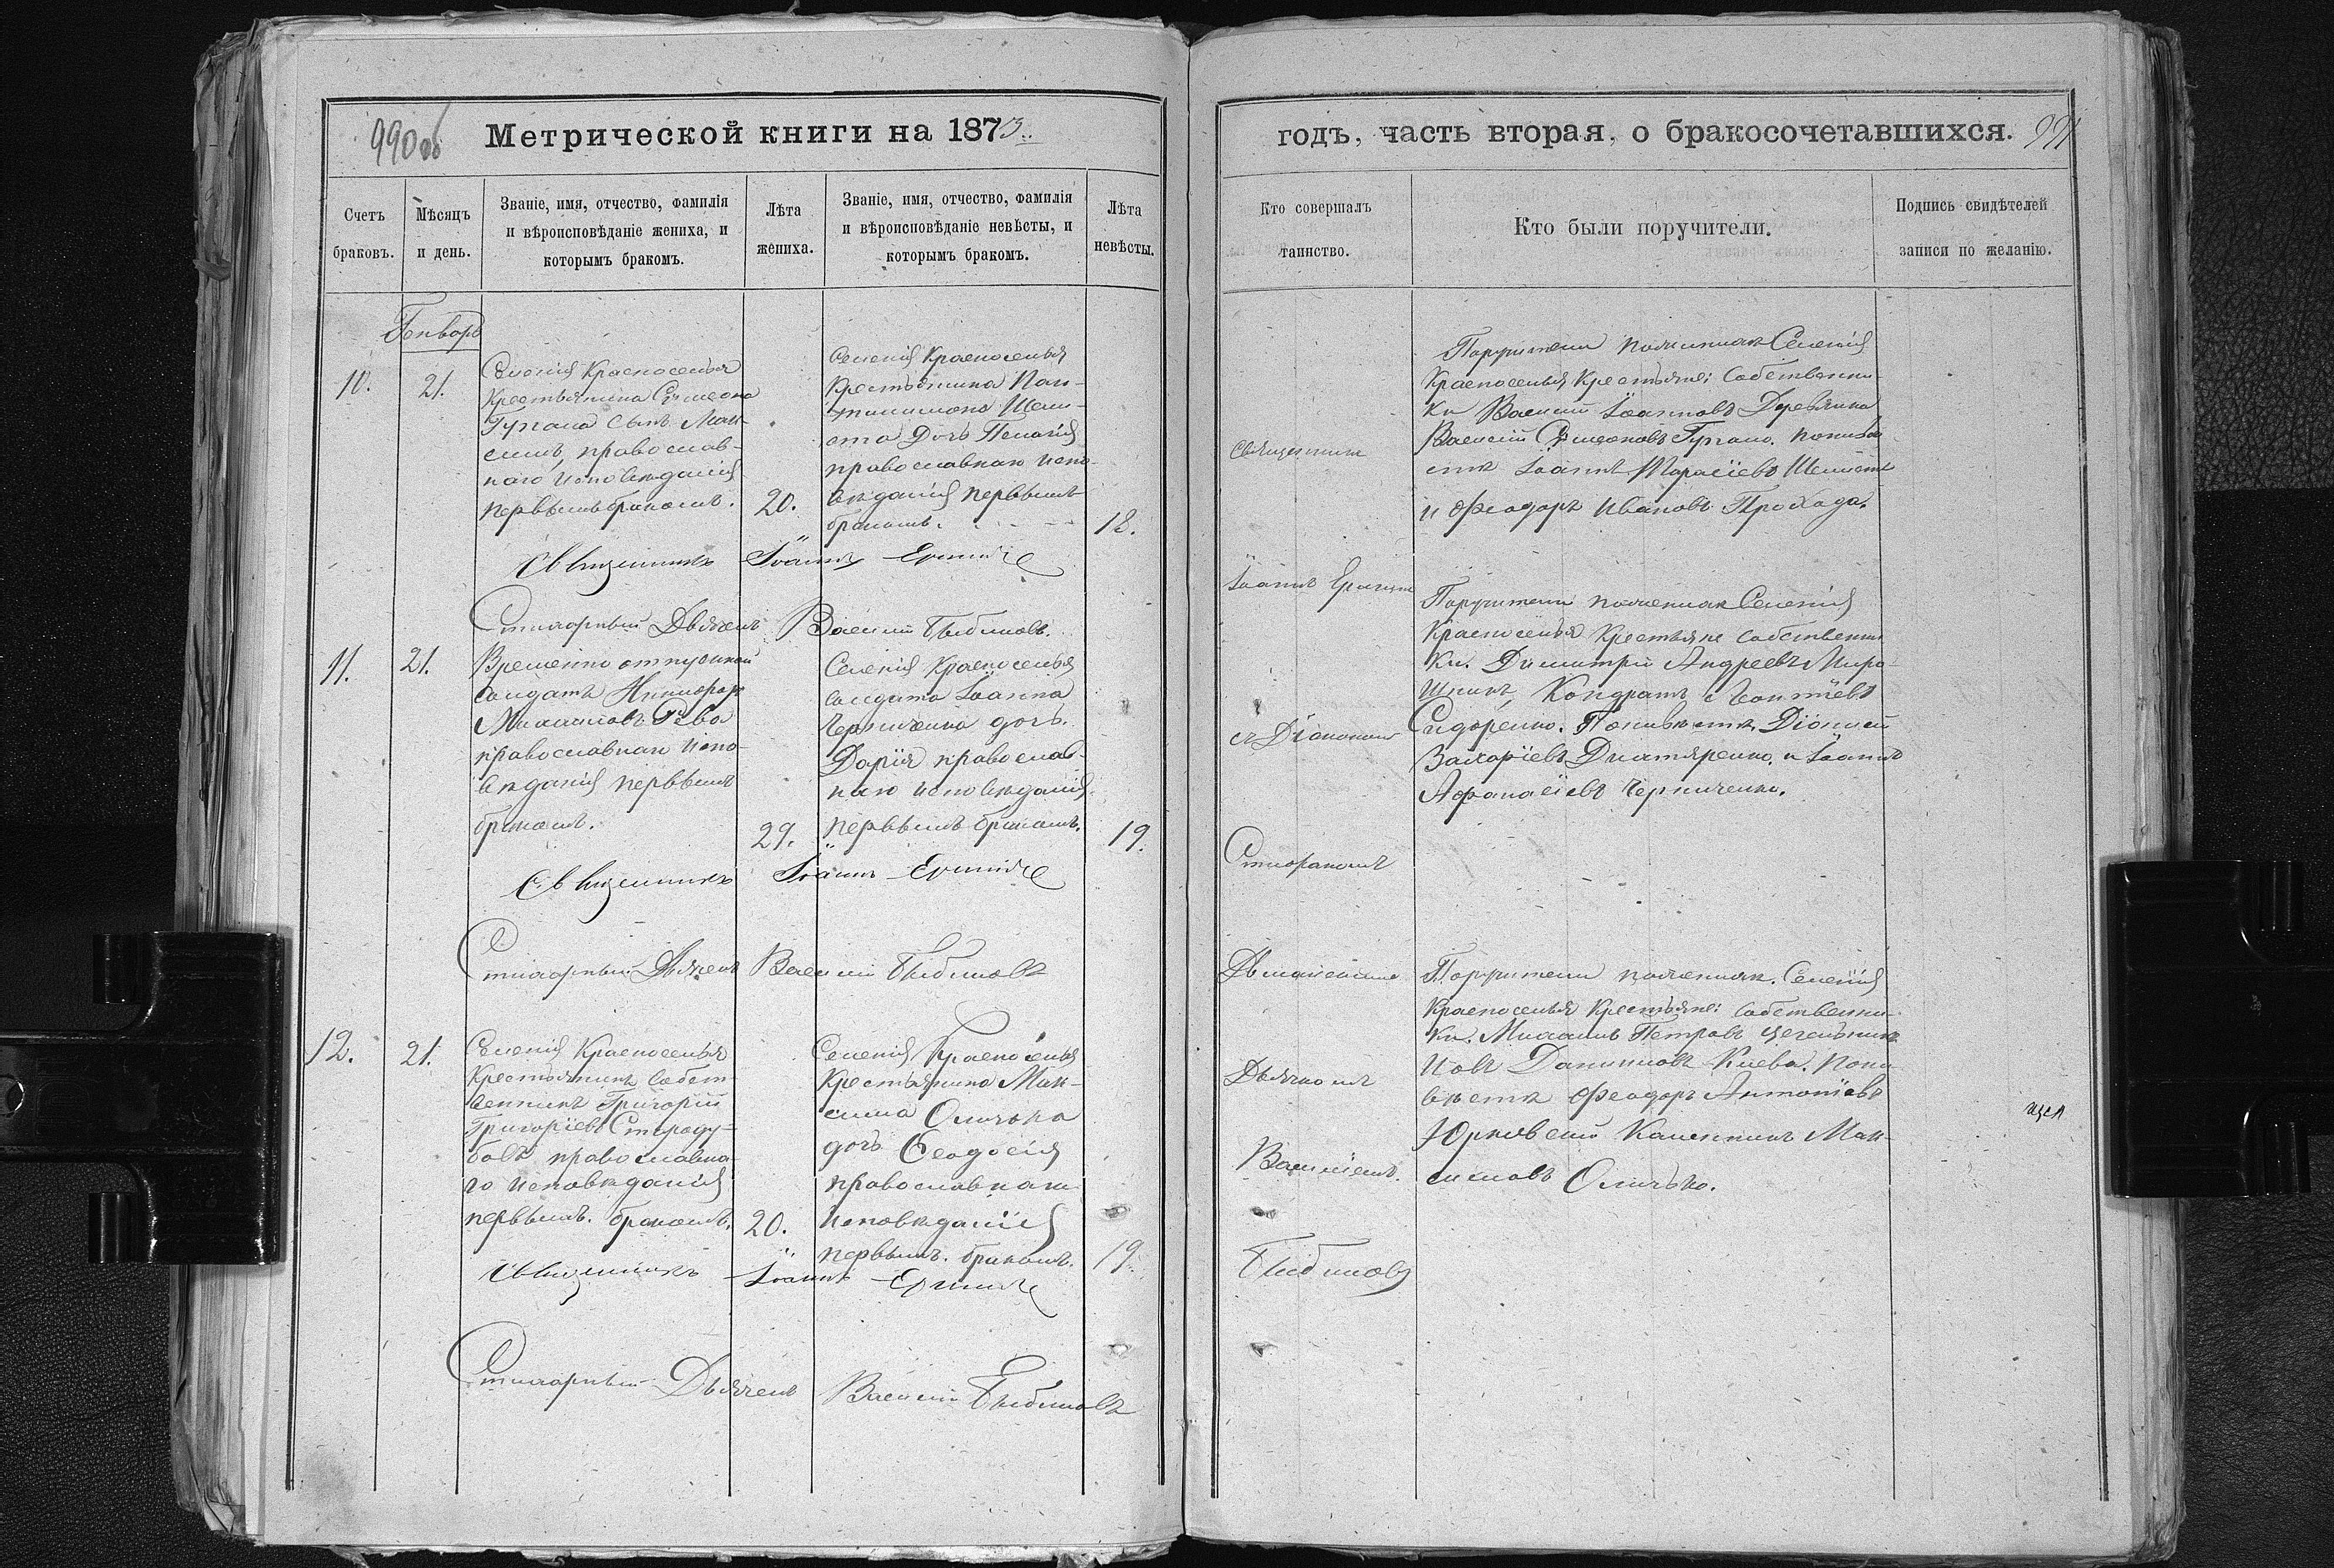 990 об
Метрической книги на 1873.
Счетъ
браковъ.
Мѣсяцъ
и день.
Званіе, имя, отчество, фамилія
и вѣроисповѣданіе жениха, и
которымъ бракомъ.
Лѣта
жениха.
Званіе, имя, отчество, фамилія
и вѣроисповѣданіе невѣсты, и
которымъ бракомъ.
Лѣта
невѣсты.
Генварь
10.
21.
Селенія Красноселья
Крестьянина Сѵмеона
Гупала сынъ Мак-
симъ, православ-
наго исповѣданія
первымъ бракомъ.
20.
Селенія Красноселья
Крестьянина Пан-
дочь Пелагія
православнаго испо-
вѣданія первымъ
бракомъ.
18.
Священникъ Іоаннъ
Стихарный Дьячекъ Василій
11.
21.
Временно отпускной
солдатъ Никифоръ
Михаиловъ Рева
православнаго испо-
вѣданія первымъ
бракомъ.
29.
Селенія Красноселья
солдата Іоанна
Черниченка дочь
Дарія православ-
наго исповѣданія
первымъ бракомъ.
19.
Священникъ Іоаннъ
Стихарный Дьячекъ Василій
12.
21.
Селенія Красноселья
Крестьянинъ Собст-
венникъ Григорій
Григоріевъ Староду-
бовъ православна-
го исповѣданія
первымъ бракомъ.
20.
Селенія Красноселья
Крестьянина Мак-
сима
дочь Ѳеодосія
православнаго
исповѣданія
первымъ бракомъ.
19.
Священникъ Іоаннъ
Стихарный Дьячекъ Василій
годъ, часть вторая, о бракосочетавшихся.
991
Кто совершалъ
таинство.
Кто были поручители.
Подпись свидѣтелей
записи по желанію.
Священникъ
Іоаннъ
съ Діакономъ
Дьячкомъ
Василіемъ
Поручители по женихѣ Селенія
Красноселья Крестьяне: Собственни-
ки Василій Іоанновъ Деревянко
Василій Сѵмеоновъ Гупало. по невѣ-
стѣ Іоаннъ Тарасіевъ
и Ѳеодоръ Ивановъ Прохода.
Поручители по женихѣ Селенія
Красноселья Крестьяне Собственни-
ки. Димитрій Андреевъ Миро-
шникъ, Кондратъ Леонтіевъ
Сидоренко. По невѣстѣ, Діонисій
Захаріевъ Дихтяренко, и Іоаннъ
Аѳанасіевъ Черниченко.
Поручители по женихѣ. Селенія
Красноселья Крестьяне: Собственни-
ки. Михаилъ Петровъ Цегельникъ
Іовъ Даниловъ Киева. По не-
вѣстѣ Ѳеодоръ Антоніевъ
Юрковскій Каленникъ Мак-
симовъ